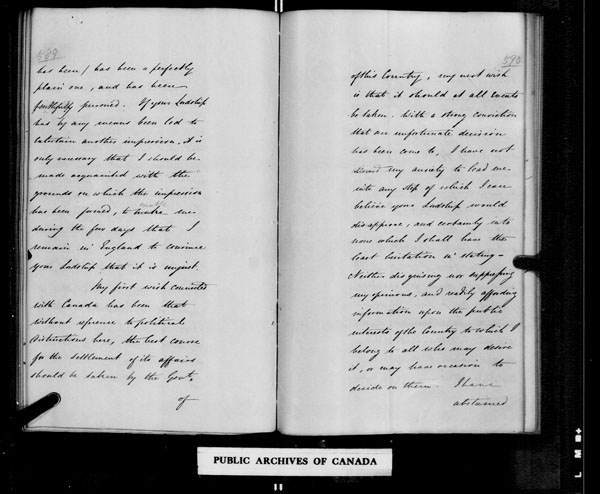 589
has been / has been a perfectly
plain one, and has been
faithfully pursued. If your Lordship
has by any means been led to
entertain another impression, it is
only necessary that I should be
made acquainted with the
grounds on which the impression
has been formed, to enable me
during the few days that I
remain in England to convince
your Lordship that it is unjust.
My first wish connected
with Canada has been that
without reference to political
distinctions here, the best course
for the settlement of its affairs
should be taken by the Govt.
of
590
of this Country, my next wish
is that it should at all events
be taken. With a strong conviction
that an unfortunate decision
has been come to, I have not
allowed my anxiety to lead me
into any step of which I can
believe your Lordship would
disapprove, and certainly into
none which I shall have the
least hesitation in stating –
Neither disguising nor suppressing
my opinions, and readily affording
information upon the public
interests of the Country to which I
belong to all who may desire
it, or may have occasion to
decide on them. I have
abstained
PUBLIC ARCHIVES OF CANADA